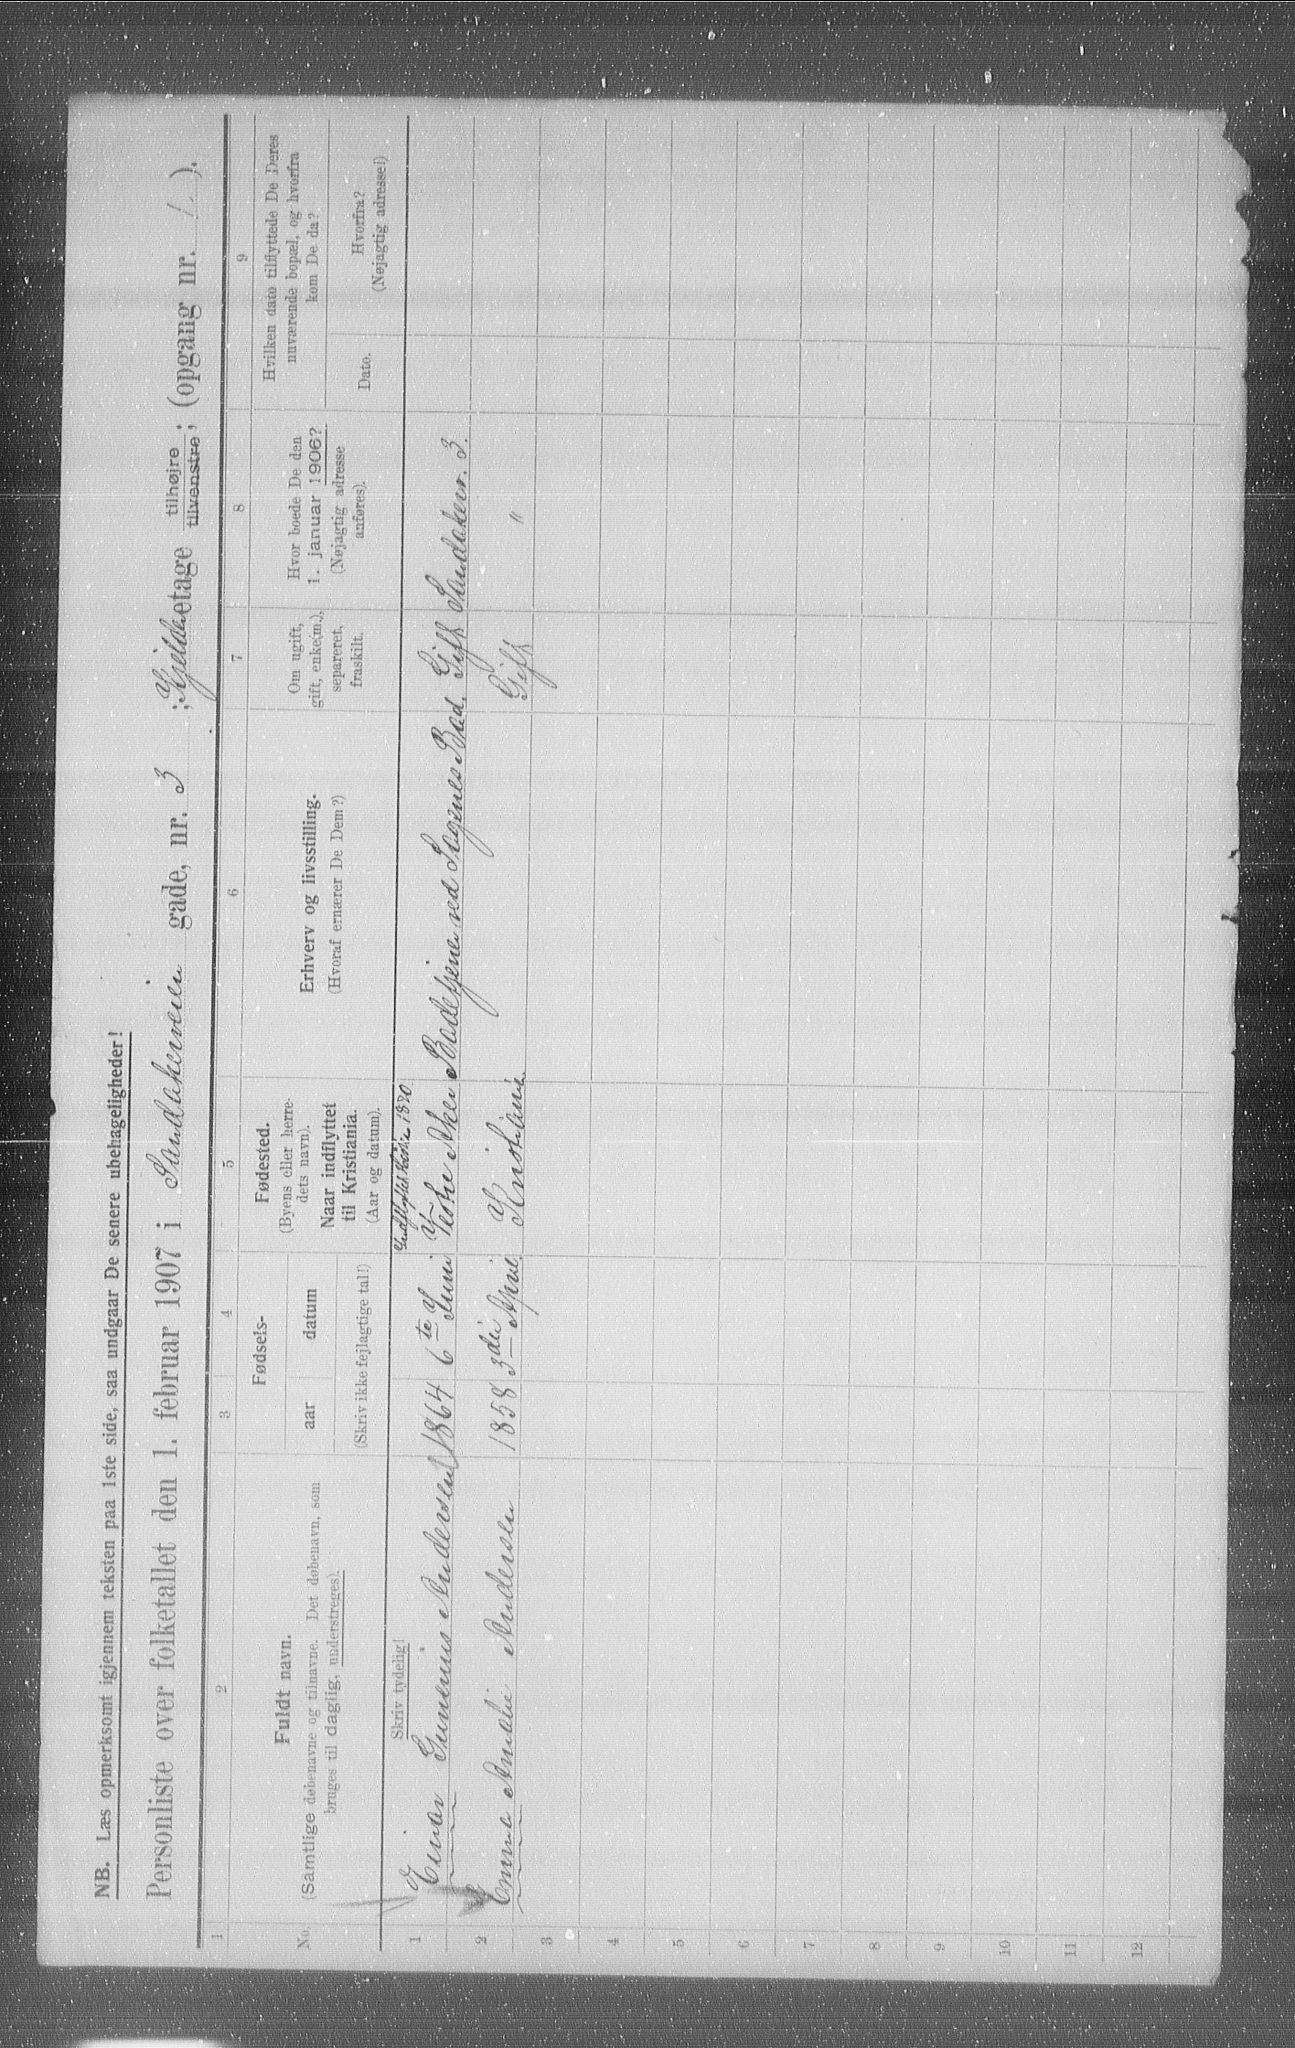 NB. Læs opmerksomt igjennem teksten paa 1ste side, saa undgaar De senere ubehageligheder!
Personliste over folketallet den 1. februar 1907 i Sandakerveien gade, nr. 3 ; Kjelderetage tilhøjre ; (opgang nr. 1 ).
tilvenstre
1 2 3 4 5 6 7 8 9
No.
Fuldt navn.
(Samtlige døbenavne og tilnavne. Det døbenavn, som
bruges til daglig, understreges).
Fødsels-
aar datum
(Skriv ikke fejlagtige tal!)
Fødested.
(Byens eller herre-
dets navn).
Naar indflyttet
til Kristiania.
(Aar og datum).
Erhverv og livsstilling.
(Hvoraf ernærer De Dem?)
Om ugift,
gift, enke(m.),
separeret,
fraskilt.
Hvor boede De den
1. januar 1906?
(Nøjagtig adresse
anføres).
Hvilken dato tilflyttede De Deres
nuværende bopæl, og hvorfra
kom De da?
Dato.
Hvorfra?
(Nøjagtig adresse!)
Skriv tydelig!
Indflyttet 1890
1 Einar Gunerius Andersen 1864 6te Juni Vestre Aker Badetjener ved Sagenes Bad. Gift Sandakerv. 3.
2 Emma Amalie Andersen 1858 3die April Kristiania. Gift "
3
4
5
6
7
8
9
10
11
12